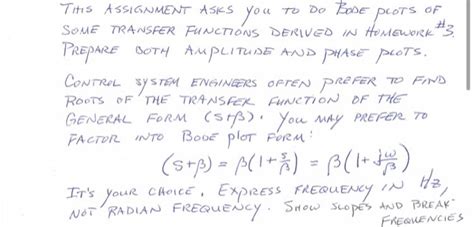 THIS ASSIGNMENT ASKS YOU TO DO BODE PLOTS OF
SOME TRANSFER FUNCTIONS DERIVED IN HOMEWORK #3.
PREPARE BOTH AMPLITUDE AND PHASE PLOTS.
CONTROL SYSTEM ENGINEERS OFTEN PREFER TO FIND
ROOTS OF THE TRANSFER FUNCTION OF THE
GENERAL FORM (S+β). YOU MAY PREFER TO
FACTOR INTO BODE PLOT FORM:
(S+β) = β(1+ s/β) = β(1+ jω/β)
IT'S YOUR CHOICE. EXPRESS FREQUENCY IN Hz,
NOT RADIAN FREQUENCY. SHOW SLOPES AND BREAK
FREQUENCIES